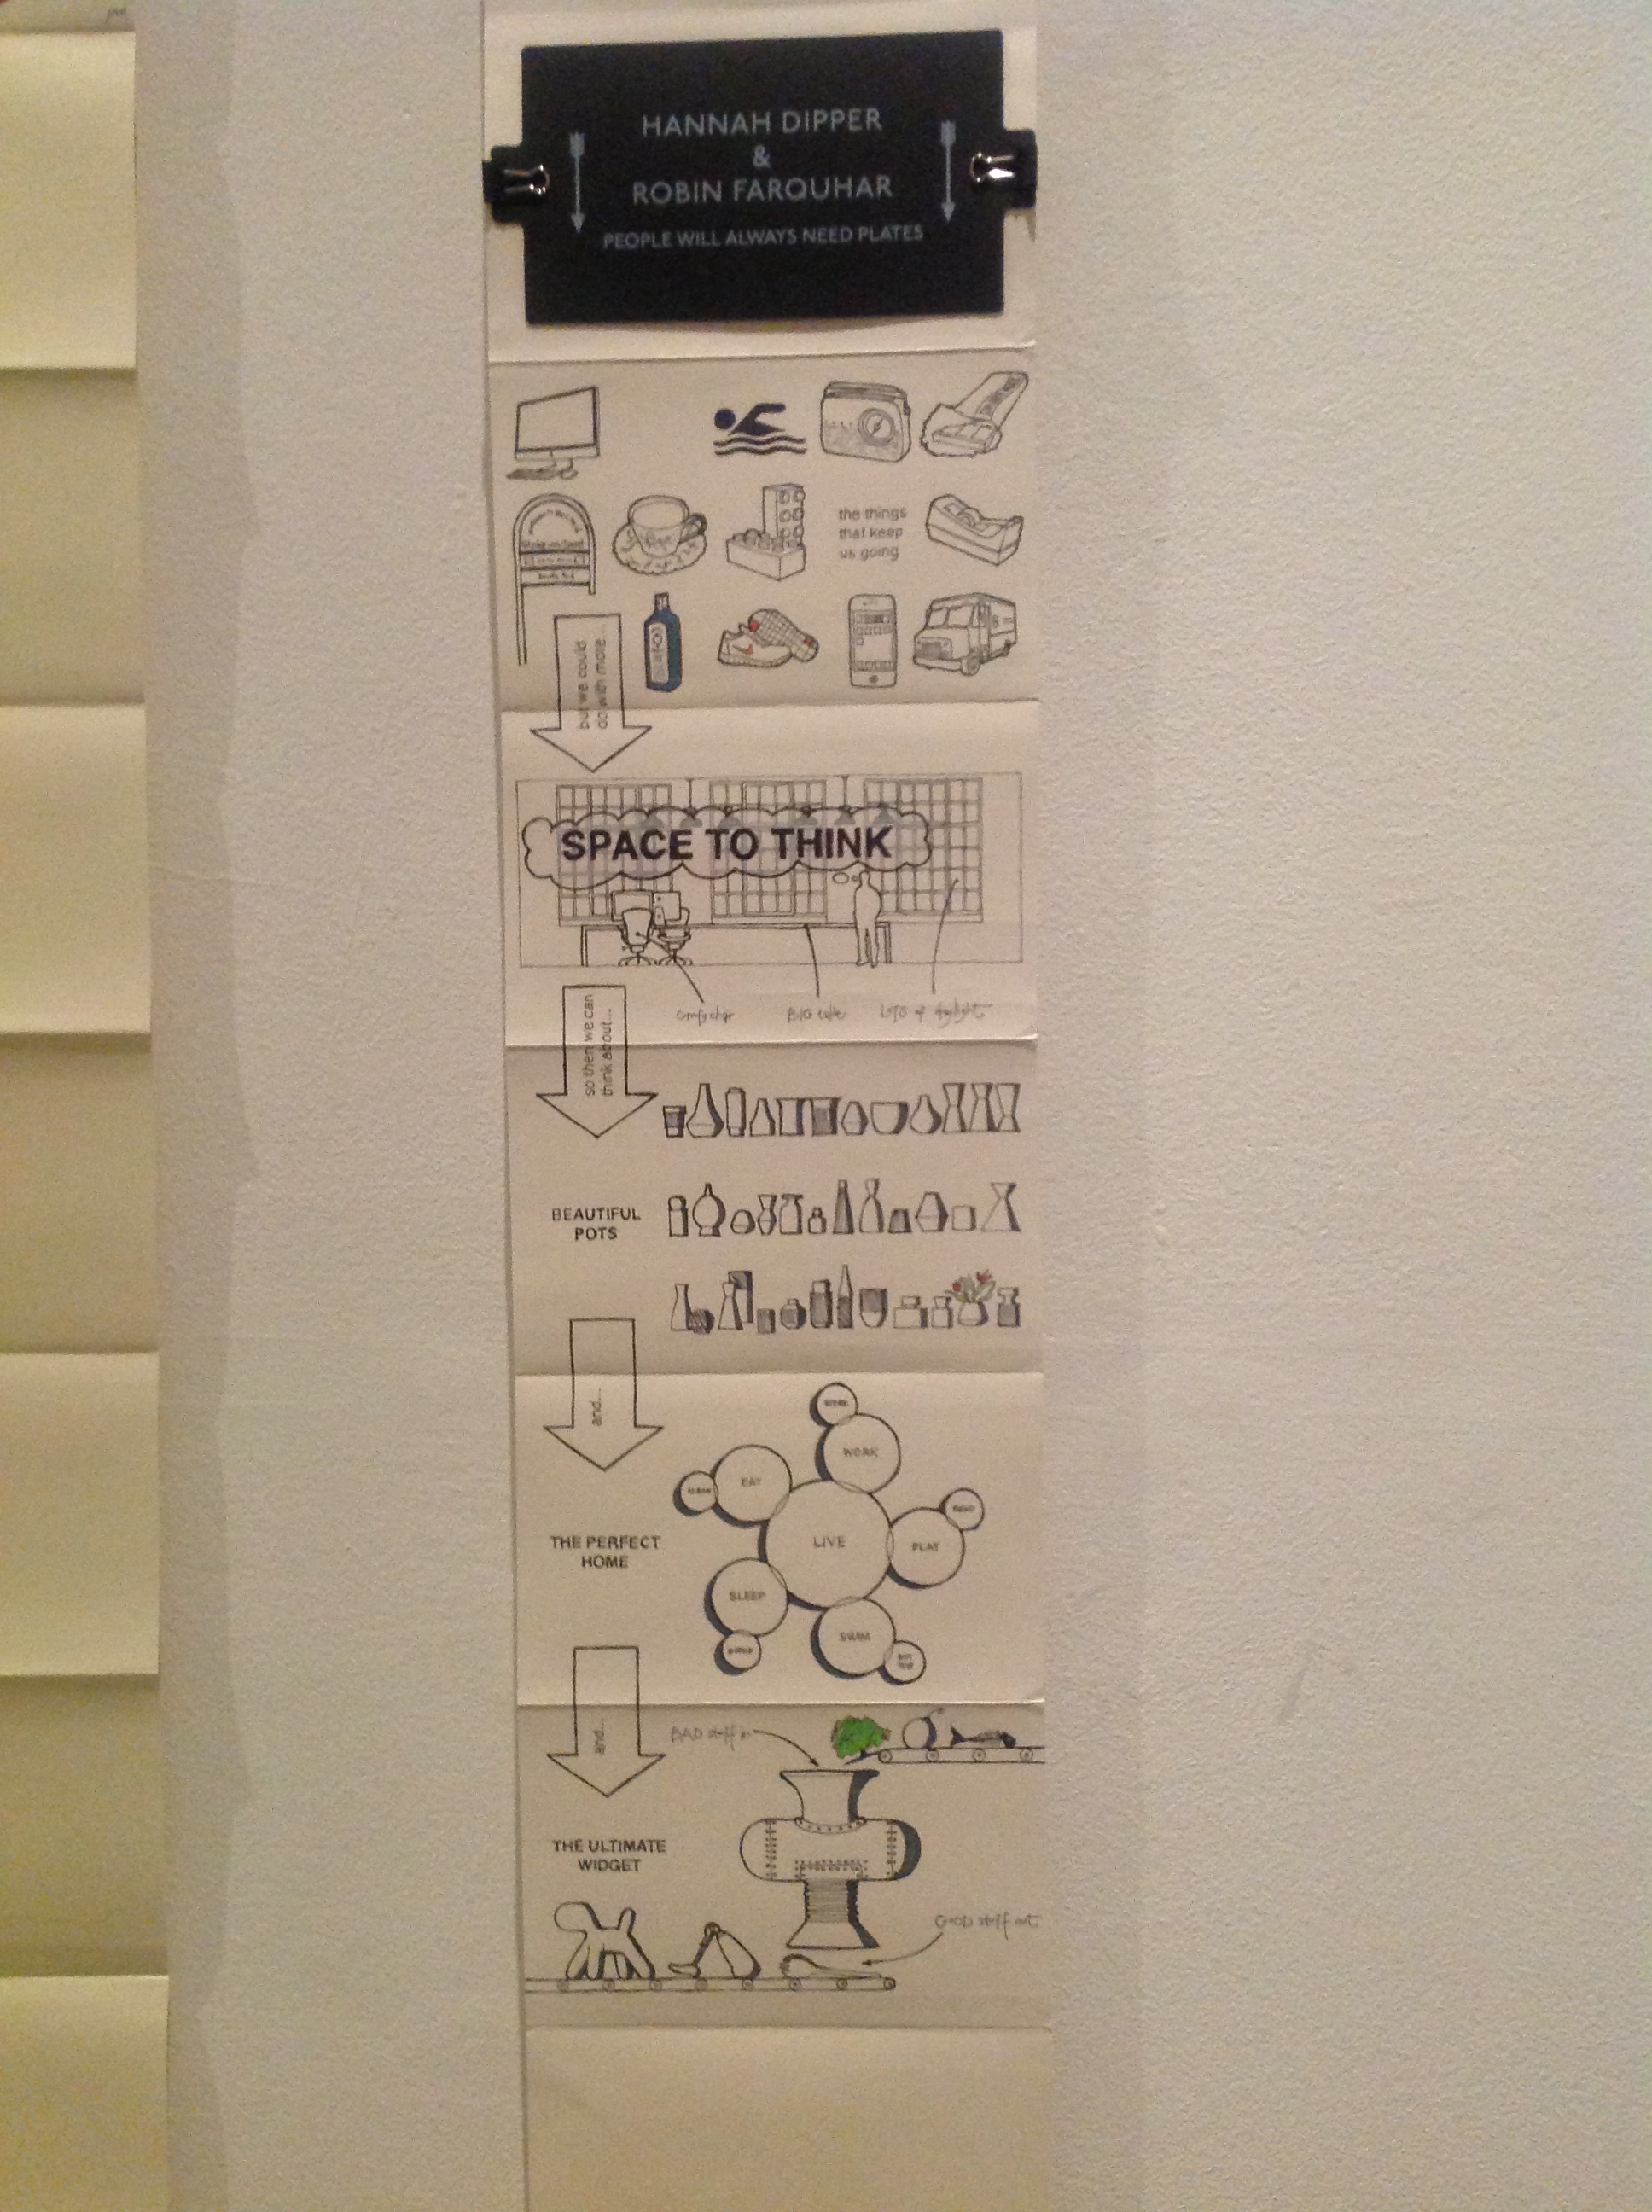 HANNAH DIPPER
&
ROBIN FARQUHAR
PEOPLE WILL ALWAYS NEED PLATES
the things
that keep
us going
but we could
do with more...
SPACE TO THINK
Comfy chair
BIG table
LOTS of daylight
so then we can
think about...
BEAUTIFUL
POTS
and...
THE PERFECT
HOME
WORK
EAT
LIVE
PLAY
SLEEP
SWIM
and...
BAD stuff in
THE ULTIMATE
WIDGET
GOOD stuff out